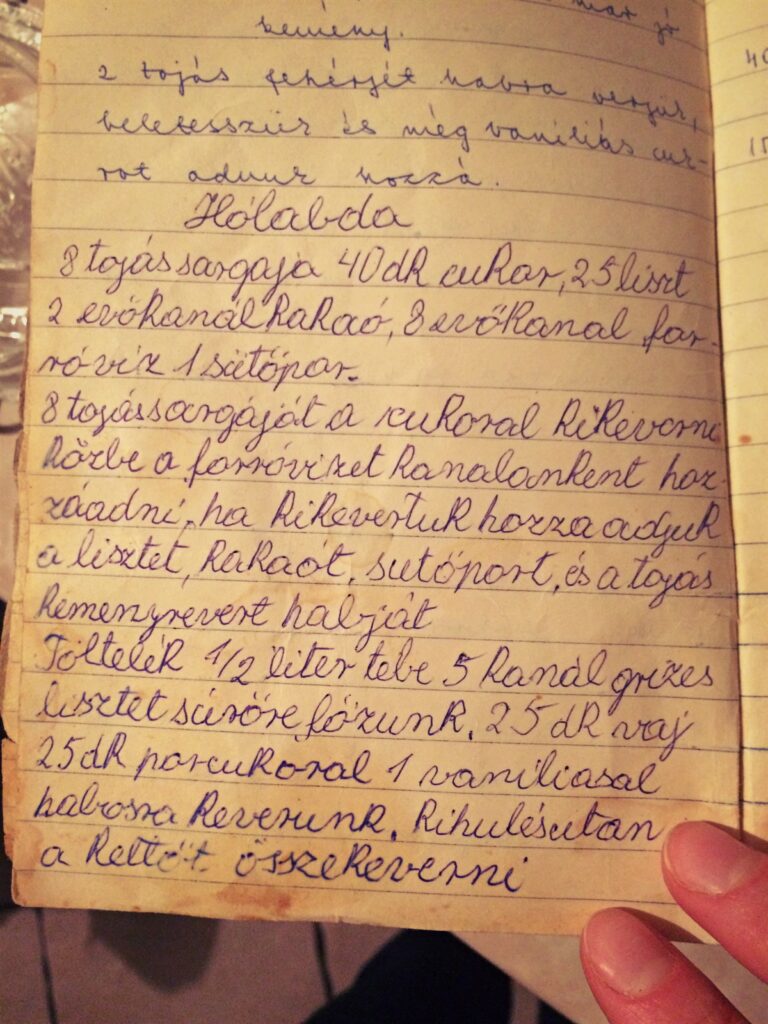 már jó
kemény.
2 tojás fehérjét habra verjük,
beletesszük és még vaniliás cuk-
rot adunk hozzá.
Hólabda
8 tojássargaja 40dk cukor, 25 liszt
2 evőkanál kakaó, 8 evőkanal for-
róviz 1 sütőpor.
8 tojássargáját a cukoral kikeverni
közbe a forróvizet kanalankent hoz-
záadni, ha kikevertuk hozza adjuk
a lisztet, kakaót, sutóport, és a tojás
kemenyrevert habját
Töltelék 1/2 liter tebe 5 kanál grizes
lisztet sürőre fózunk. 25 dk vaj
25dk porcukoral 1 vaniliasal
habosra keverunk. kihulésutan
a kettőt összekeverni
40
15